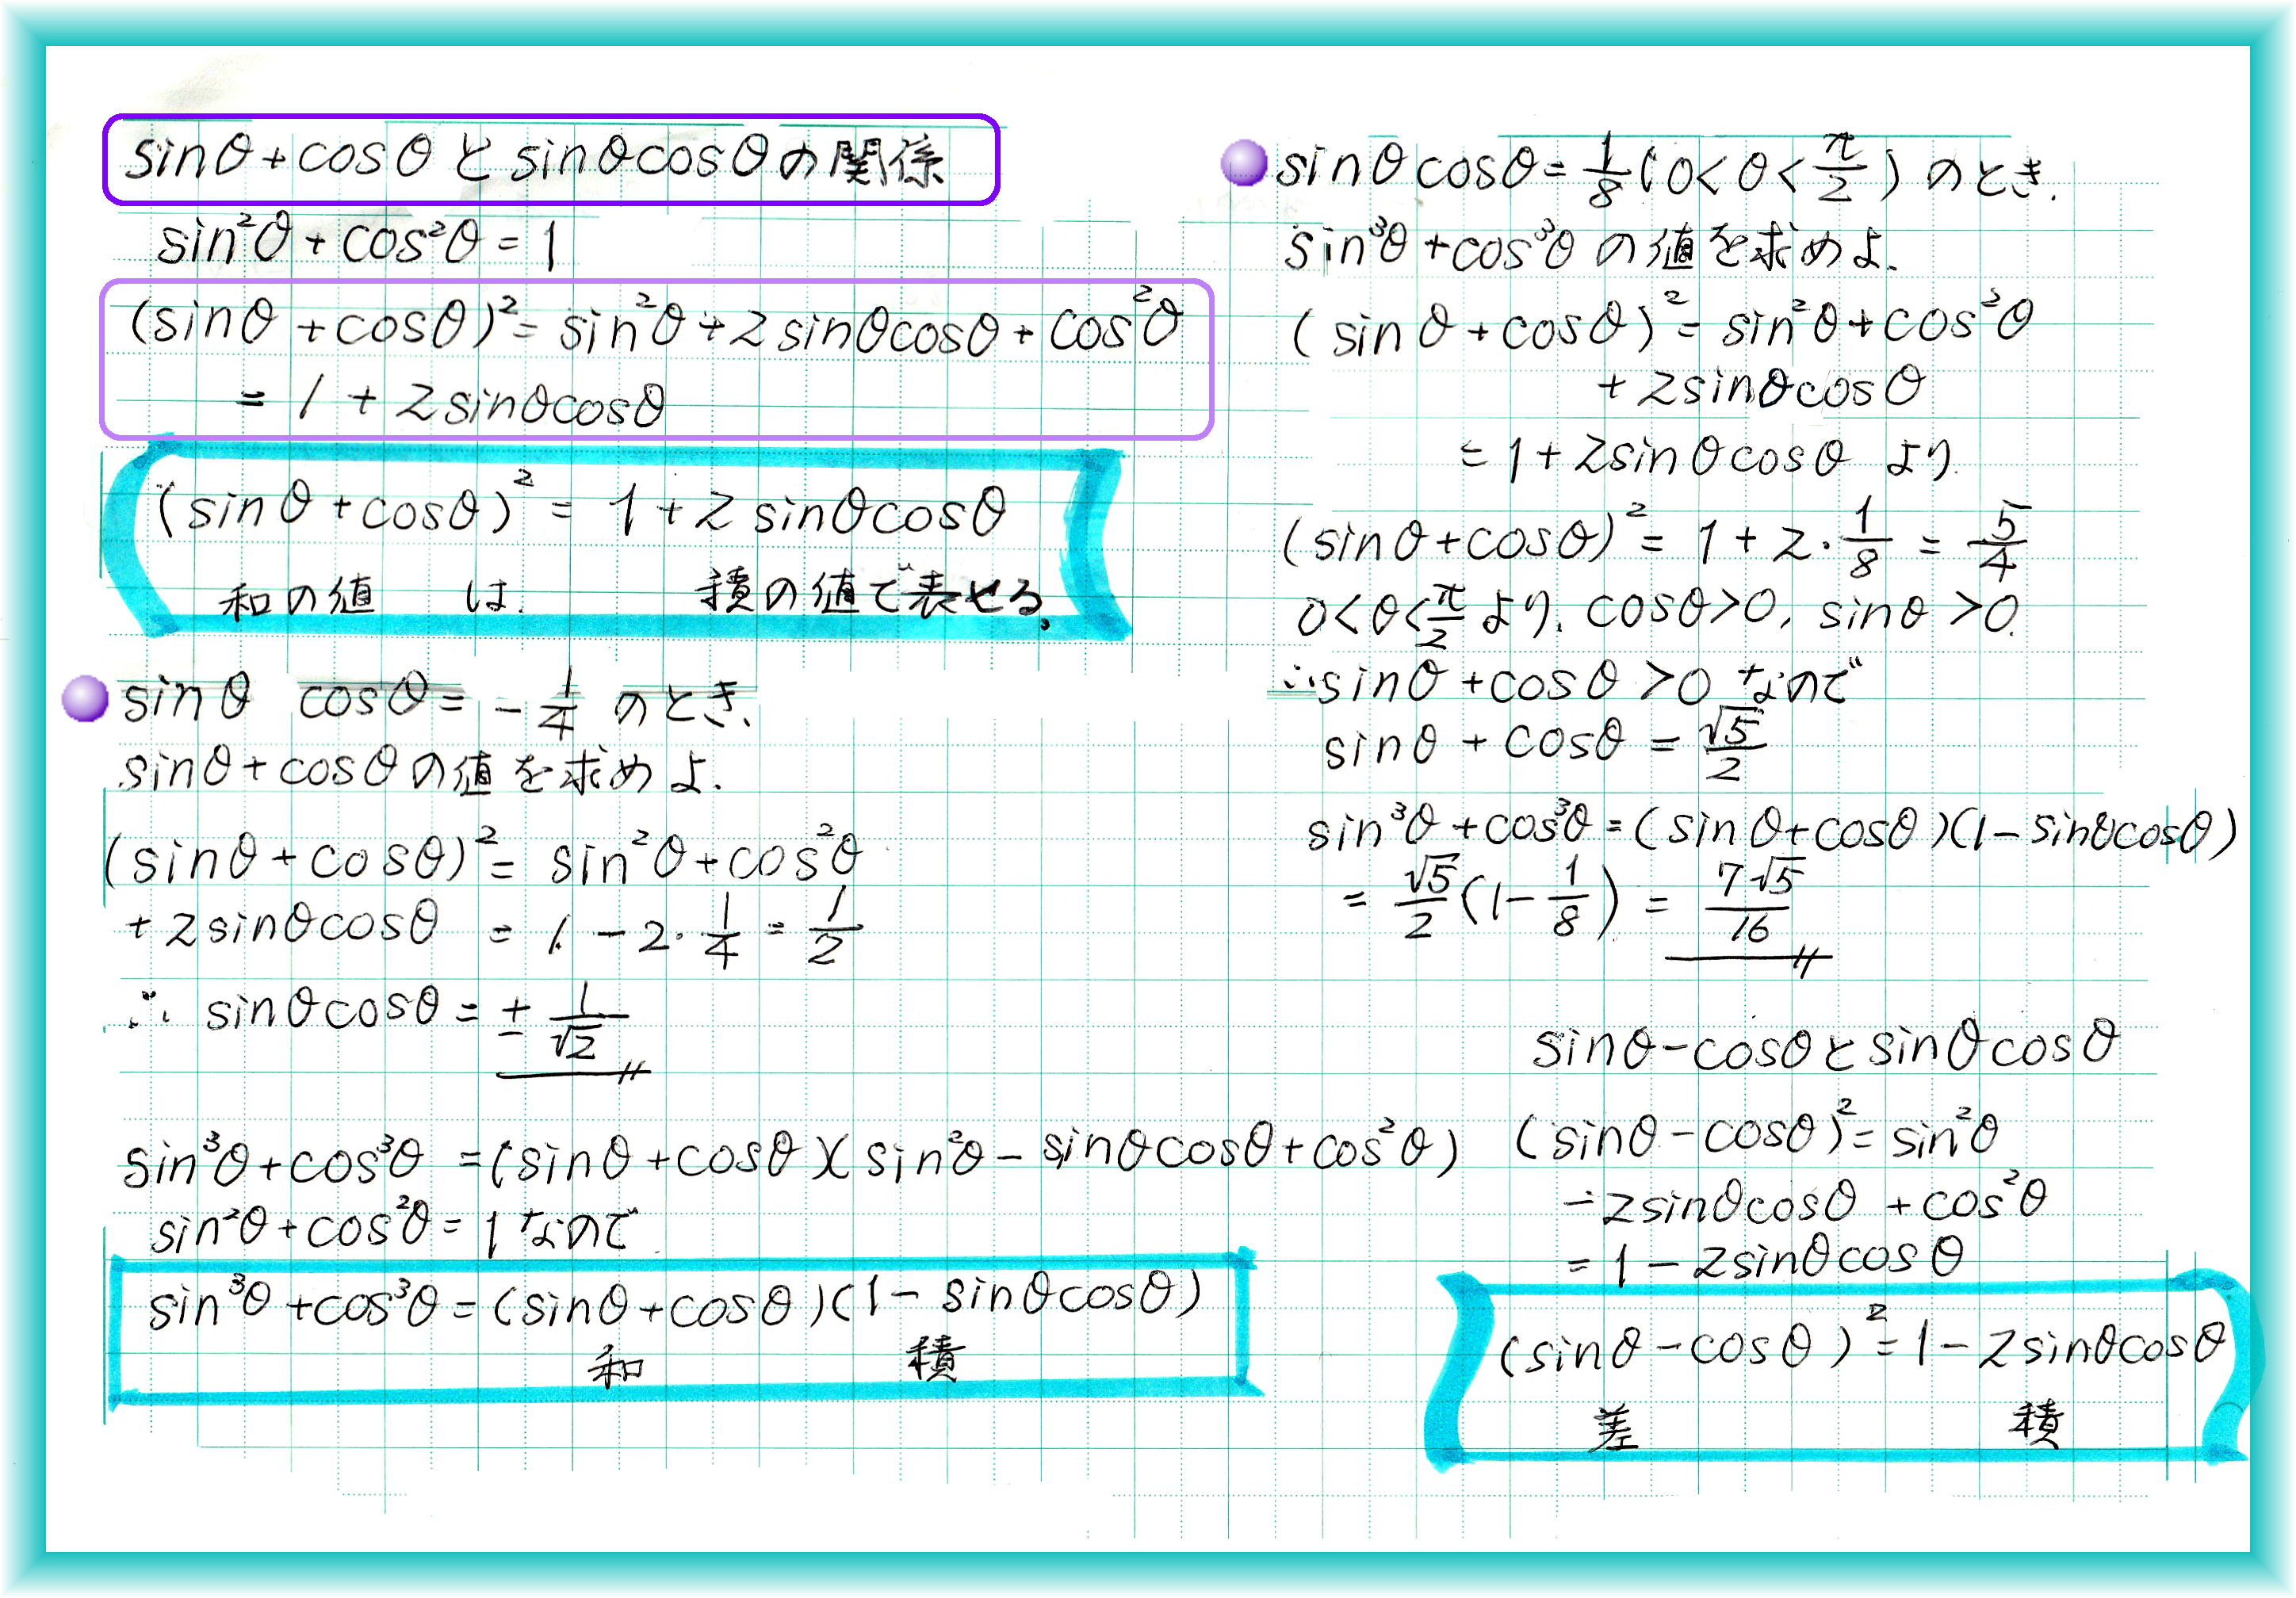 sinθ+cosθとsinθcosθの関係
sin²θ+cos²θ=1
(sinθ+cosθ)²=sin²θ+2sinθcosθ+cos²θ
=1+2sinθcosθ
(sinθ+cosθ)²=1+2sinθcosθ
和の値 は、 積の値で表せる。
sinθ cosθ=-1/4 のとき、
sinθ+cosθの値を求めよ.
(sinθ+cosθ)²=sin²θ+cos²θ
+2sinθcosθ =1-2・1/4=1/2
∴ sinθcosθ=±1/√2
sin³θ+cos³θ=(sinθ+cosθ)(sin²θ-sinθcosθ+cos²θ)
sin²θ+cos²θ=1なので
sin³θ+cos³θ=(sinθ+cosθ)(1-sinθcosθ)
和 積
sinθcosθ=1/8(0<θ<π/2)のとき.
sin³θ+cos³θの値を求めよ.
(sinθ+cosθ)²=sin²θ+cos²θ
+2sinθcosθ
=1+2sinθcosθ より
(sinθ+cosθ)²=1+2・1/8=5/4
0<θ<π/2より、cosθ>0, sinθ>0.
∴sinθ+cosθ>0なので
sinθ+cosθ=√5/2
sin³θ+cos³θ=(sinθ+cosθ)(1-sinθcosθ)
=√5/2(1-1/8)=7√5/16
sinθ-cosθとsinθcosθ
(sinθ-cosθ)²=sin²θ
-2sinθcosθ+cos²θ
=1-2sinθcosθ
(sinθ-cosθ)²=1-2sinθcosθ
差 積